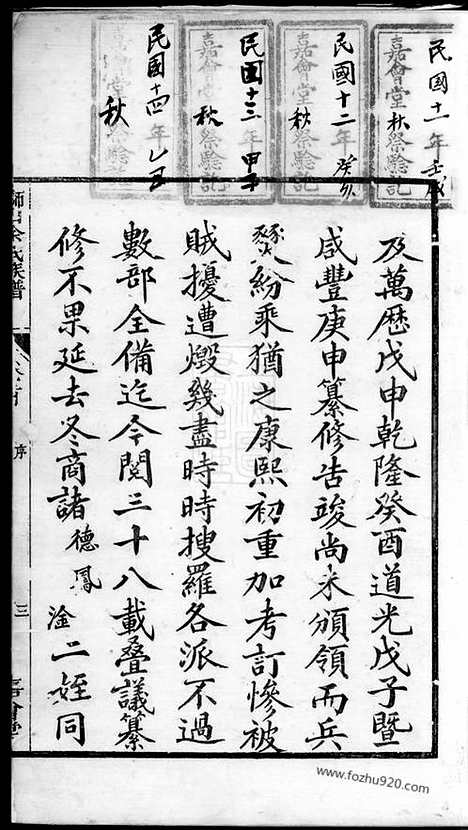 民國十一年壬戌
嘉會堂秋祭驗記
民國十二年癸亥
嘉會堂祭驗記
秋
民國十三年甲子
嘉會堂祭驗記
秋
民國十四年乙丑
秋
及萬歷戊申乾隆癸酉道光戊子暨
咸豐庚申纂修告竣尚未頒領而兵
燹紛乘猶之康熙初重加考訂慘被
賊擾遭燬幾盡時時搜羅各派不過
數部全備迄今閱三十八載叠議纂
修不果延去冬商諸德鳳淦二姪同
余氏族譜
序
三
嘉會堂
www.fozhu920.com